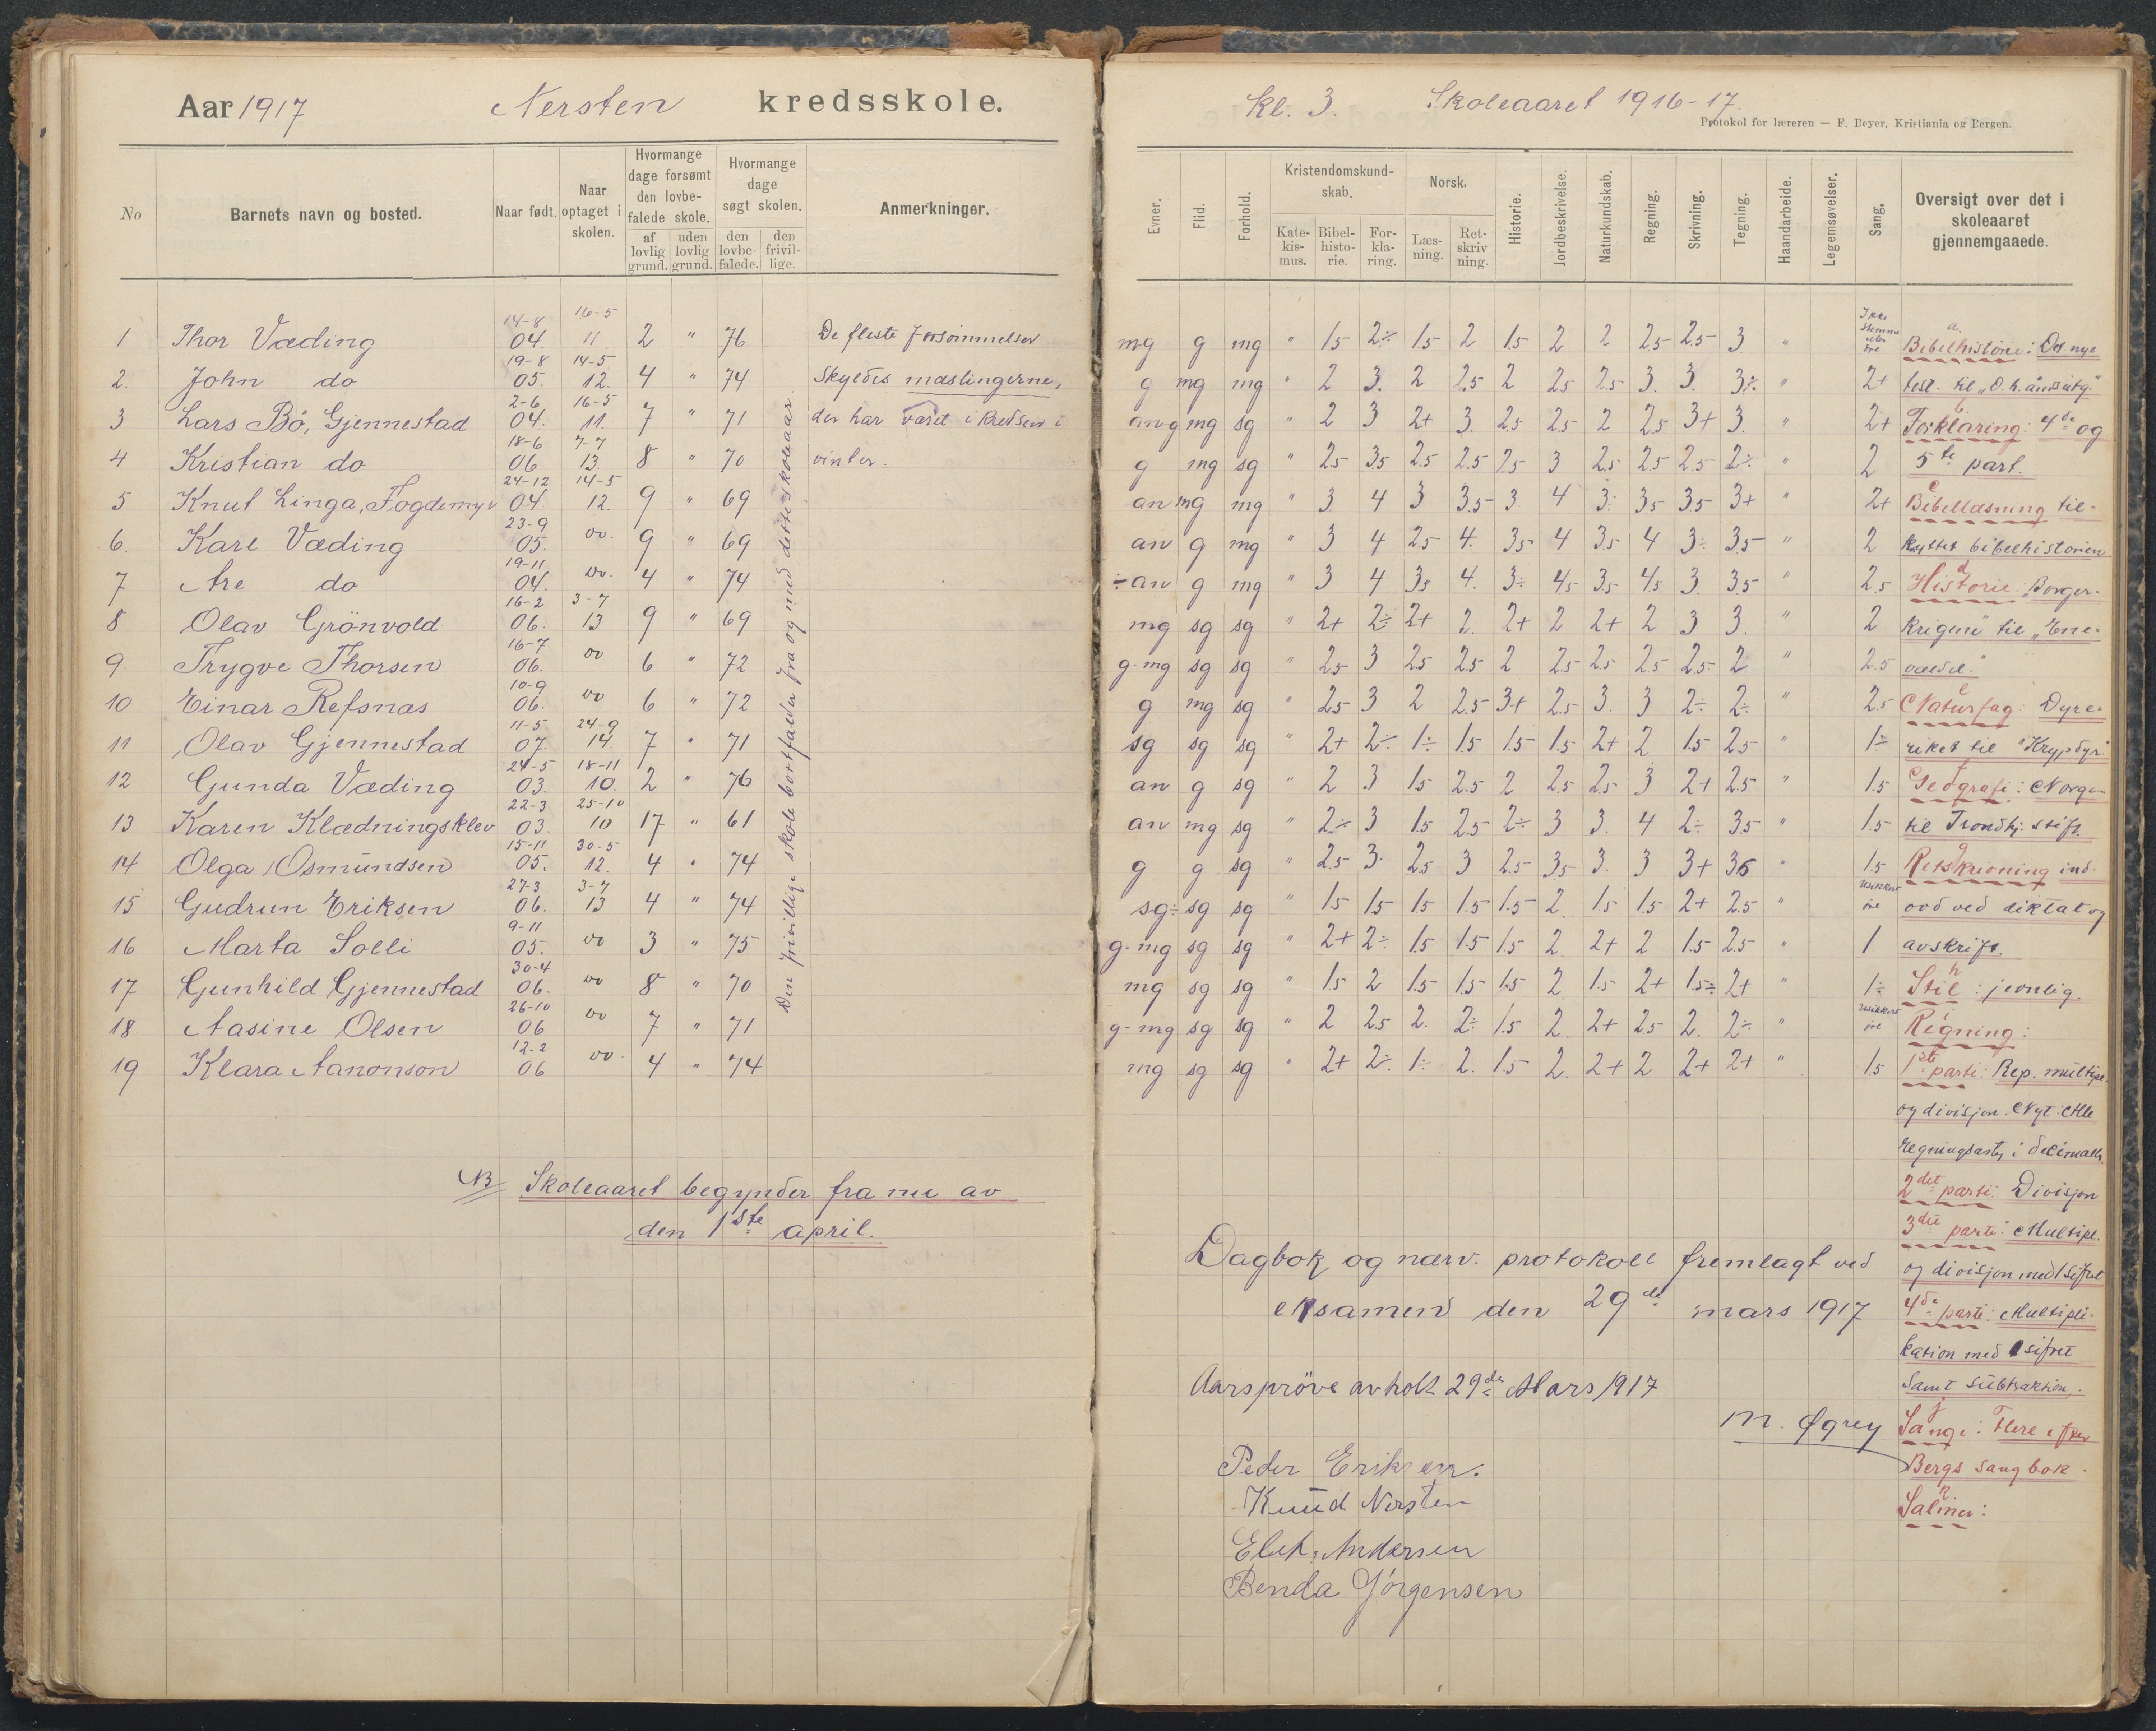 Aar 1917 Nersten kredsskole.
No
Barnets navn og bosted.
Naar født.
Naar optaget i skolen.
Hvormange dage forsømt den lovbefalede skole.
af lovlig grund.
uden lovlig grund.
Hvormange dage søgt skolen.
den lovbefalede.
den frivillige.
Anmerkninger.
1 Thor Væding 14-8 04. 16-5 11 2 " 76 De fleste forsömmelser
2. John do 19-8 05. 14-5 12. 4 " 74 Skyldes mæslingerne,
3 Lars Bö, Gjennestad 2-6 04. 16-5 11. 7 " 71 der har været i kredsen i
4 Kristian do 18-6 06 7-7 13. 8 " 70 vinter.
5 Knut Linga, Fogdemyr 24-12 04. 14-5 12. 9 " 69
6. Karl Væding 23-9 05. do. 9 " 69
7 Are do 19-11 04. do. 4 " 74
8 Olav Grönvold 16-2 06. 3-7 13 9 " 69
9. Trygve Thorsen 16-7 06. do 6 " 72
10 Einar Refsnæs 10-9 06. do 6 " 72
11 Olav Gjennestad 11-5 07. 24-9 14. 7 " 71
12 Gunda Væding 24-5 03. 18-11 10. 2 " 76
13 Karen Klædningsklev 22-3 03. 25-10 10 17 " 61
14 Olga Osmundsen 15-11 05. 30-5 12. 4 " 74
15 Gudrun Eriksen 27-3 06. 3-7 13 4 " 74
16 Marta Solli 9-11 05. do 3 " 75
17 Gunhild Gjennestad 30-4 06. do 8 " 70
18 Aasine Olsen 26-10 06 do 7 " 71
19 Klara Aanonson 12-2 06 do. 4 " 74
Den frivillige skole bortfalder fra og med dette skoleaar.
NB Skoleaaret begynder fra nu av
den 1ste april.
kl. 3. Skoleaaret 1916-17.
Protokol for læreren — F. Beyer, Kristiania og Bergen.
Evner.
Flid.
Forhold.
Kristendomskundskab.
Katekismus.
Bibelhistorie.
Forklaring.
Norsk.
Læsning.
Retskrivning.
Historie.
Jordbeskrivelse.
Naturkundskab.
Regning.
Skrivning.
Tegning.
Haandarbeide.
Legemsøvelser.
Sang.
Oversigt over det i skoleaaret gjennemgaaede.
mg g mg " 1.5 2÷ 1.5 2 1.5 2 2 2.5 2.5 3 "
g mg mg " 2 3. 2 2.5 2 2.5 2.5 3. 3. 3÷ " 2+
ang mg sg " 2 3 2+ 3. 2.5 2.5 2 2.5 3+ 3. " 2+
g mg sg " 2.5 3.5 2.5 2.5 2.5 3 2.5 2.5 2.5 2÷ " 2
an mg mg " 3 4 3 3.5 3. 4 3. 3.5 3.5 3+ " 2+
an g mg " 3 4 2.5 4. 3.5 4 3.5 4 3÷ 3.5 " 2
÷an g mg " 3 4 3.5 4. 3÷ 4.5 3.5 4.5 3. 3.5 " 2.5
mg sg sg " 2+ 2÷ 2+ 2. 2+ 2 2+ 2 3 3. " 2
g-mg sg sg " 2.5 3 2.5 2.5 2 2.5 2.5 2.5 2.5 2 " 2.5
g mg sg " 2.5 3 2 2.5 3+ 2.5 3. 3 2÷ 2÷ " 2.5
sg sg sg " 2+ 2÷ 1÷ 1.5 1.5 1.5 2+ 2 1.5 2.5 " 1÷
an g sg " 2 3 1.5 2.5 2 2.5 2.5 3 2+ 2.5 " 1.5
an mg sg " 2÷ 3 1.5 2.5 2÷ 3 3. 4 2÷ 3.5 " 1.5
g g sg " 2.5 3. 2.5 3 2.5 3.5 3. 3 3+ 3.5 " 1.5
sg÷ sg sg " 1.5 1.5 1.5 1.5 1.5 2. 1.5 1.5 2+ 2.5 " usikkert öre
g-mg sg sg " 2+ 2÷ 1.5 1.5 1.5 2. 2+ 2 1.5 2.5 " 1
mg sg sg " 1.5 2 1.5 1.5 1.5 2 1.5 2+ 1.5÷ 2+ " 1÷
g-mg sg sg " 2 2.5 2. 2÷ 1.5 2. 2+ 2.5 2. 2÷ " usikkert öre
mg sg sg " 2+ 2÷ 1÷ 2. 1.5 2. 2+ 2 2+ 2+ " 1.5
a. Bibelhistorie: Det nye
test. til „d. h. ånds utg."
b Forklaring: 4de og
5te part.
c Bibellæsning til-
knyttet bibelhistorien
d Historie: „Borger-
krigene" til „Ene-
vælde."
e Naturfag: Dyre-
riket til "Krypdyr"
f Geografi: Norge
til Trondhj. stift.
g Retskrivning ind-
övd ved diktat og
avskrift.
h Stil: jevnlig.
i Regning:
1ste parti: Rep. multipl.
og divisjon. Nyt: Alle
regningsarter i decimalb.
2det parti: Divisjon
3die parti: Multipl.
og divisjon med 1 sifret
4de parti: Multipli-
kation med 1 sifret
samt subtraktion.
j Sange: Flere efter
Bergs sangbok.
k Salmer:
Dagbok og nærv. protokoll fremlagt ved
eksamen den 29de mars 1917
Aarspröve avholt 29de Mars 1917
M. Øgrey
Peder Eriksen.
Knud Nersten
Elek. Andersen
Benda Jörgensen